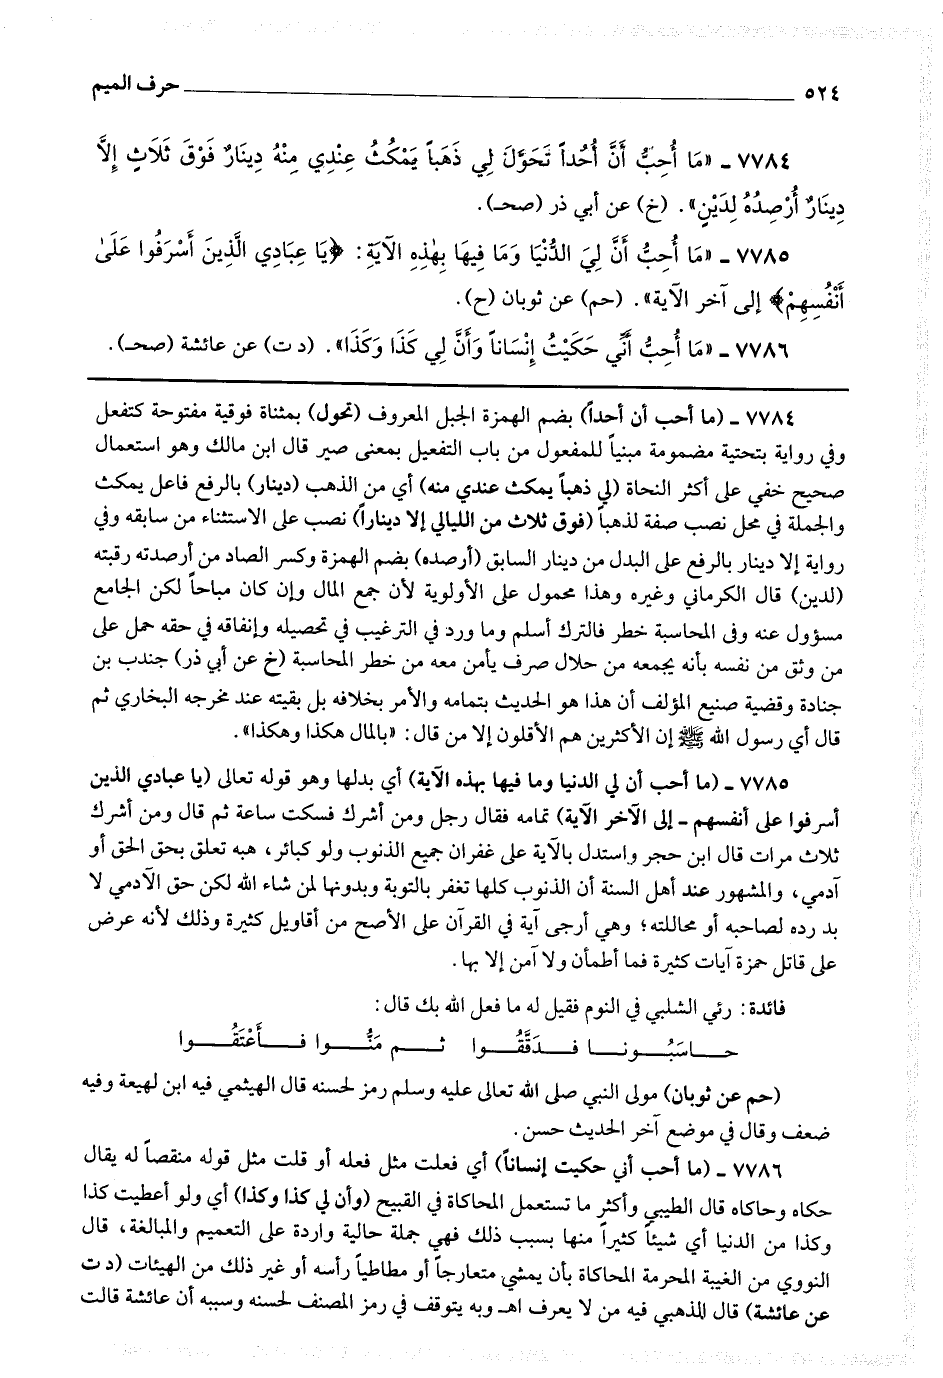 ٥٢٤ حرف الميم
٧٧٨٤ ـ «مَا أُحِبُّ أَنَّ أُحُداً تَحَوَّلَ لِي ذَهَباً يَمْكُثُ عِنْدِي مِنْهُ دِينَارٌ فَوْقَ ثَلَاثٍ إِلَّا
دِينَارٌ أُرْصِدُهُ لِدَيْنٍ». (خ) عن أبي ذر (صحـ).
٧٧٨٥ ـ «مَا أُحِبُّ أَنَّ لِيَ الدُّنْيَا وَمَا فِيهَا بِهٰذِهِ الآيَةِ: ﴿يَا عِبَادِي الَّذِينَ أَسْرَفُوا عَلَىٰ
أَنْفُسِهِمْ﴾ إلى آخر الآية». (حم) عن ثوبان (ح).
٧٧٨٦ ـ «مَا أُحِبُّ أَنِّي حَكَيْتُ إِنْسَاناً وَأَنَّ لِي كَذَا وَكَذَا». (د ت) عن عائشة (صحـ).
٧٧٨٤ ـ (ما أحب أن أحداً) بضم الهمزة الجبل المعروف (تحول) بمثناة فوقية مفتوحة كتفعل
وفي رواية بتحتية مضمومة مبنياً للمفعول من باب التفعيل بمعنى صير قال ابن مالك وهو استعمال
صحيح خفي على أكثر النحاة (لي ذهباً يمكث عندي منه) أي من الذهب (دينار) بالرفع فاعل يمكث
والجملة في محل نصب صفة لذهباً (فوق ثلاث من الليالي إلا ديناراً) نصب على الاستثناء من سابقه وفي
رواية إلا دينار بالرفع على البدل من دينار السابق (أرصده) بضم الهمزة وكسر الصاد من أرصدته رقبته
(لدين) قال الكرماني وغيره وهذا محمول على الأولوية لأن جمع المال وإن كان مباحاً لكن الجامع
مسؤول عنه وفى المحاسبة خطر فالترك أسلم وما ورد في الترغيب في تحصيله وإنفاقه في حقه حمل على
من وثق من نفسه بأنه يجمعه من حلال صرف يأمن معه من خطر المحاسبة (خ عن أبي ذر) جندب بن
جنادة وقضية صنيع المؤلف أن هذا هو الحديث بتمامه والأمر بخلافه بل بقيته عند مخرجه البخاري ثم
قال أي رسول الله ﷺ إن الأكثرين هم الأقلون إلا من قال: «بالمال هكذا وهكذا».
٧٧٨٥ ـ (ما أحب أن لي الدنيا وما فيها بهذه الآية) أي بدلها وهو قوله تعالى (يا عبادي الذين
أسرفوا على أنفسهم ـ إلى الآخر الآية) تمامه فقال رجل ومن أشرك فسكت ساعة ثم قال ومن أشرك
ثلاث مرات قال ابن حجر واستدل بالآية على غفران جميع الذنوب ولو كبائر، هبه تعلق بحق الحق أو
آدمي، والمشهور عند أهل السنة أن الذنوب كلها تغفر بالتوبة وبدونها لمن شاء الله لكن حق الآدمي لا
بد رده لصاحبه أو محاللته؛ وهي أرجى آية في القرآن على الأصح من أقاويل كثيرة وذلك لأنه عرض
على قاتل حمزة آيات كثيرة فما أطمأن ولا آمن إلا بها.
فائدة: رئي الشلبي في النوم فقيل له ما فعل الله بك قال:
حـاسَبُـونـا فـدَقَّقُـوا ثـم مَنُّـوا فـأَعْتَقُـوا
(حم عن ثوبان) مولى النبي صلى الله تعالى عليه وسلم رمز لحسنه قال الهيثمي فيه ابن لهيعة وفيه
ضعف وقال في موضع آخر الحديث حسن.
٧٧٨٦ ـ (ما أحب أني حكيت إنساناً) أي فعلت مثل فعله أو قلت مثل قوله منقصاً له يقال
حكاه وحاكاه قال الطيبي وأكثر ما تستعمل المحاكاة في القبيح (وأن لي كذا وكذا) أي ولو أعطيت كذا
وكذا من الدنيا أي شيئاً كثيراً منها بسبب ذلك فهي جملة حالية واردة على التعميم والمبالغة، قال
النووي من الغيبة المحرمة المحاكاة بأن يمشي متعارجاً أو مطاطياً رأسه أو غير ذلك من الهيئات (د ت
عن عائشة) قال المذهبي فيه من لا يعرف اهـ وبه يتوقف في رمز المصنف لحسنه وسببه أن عائشة قالت